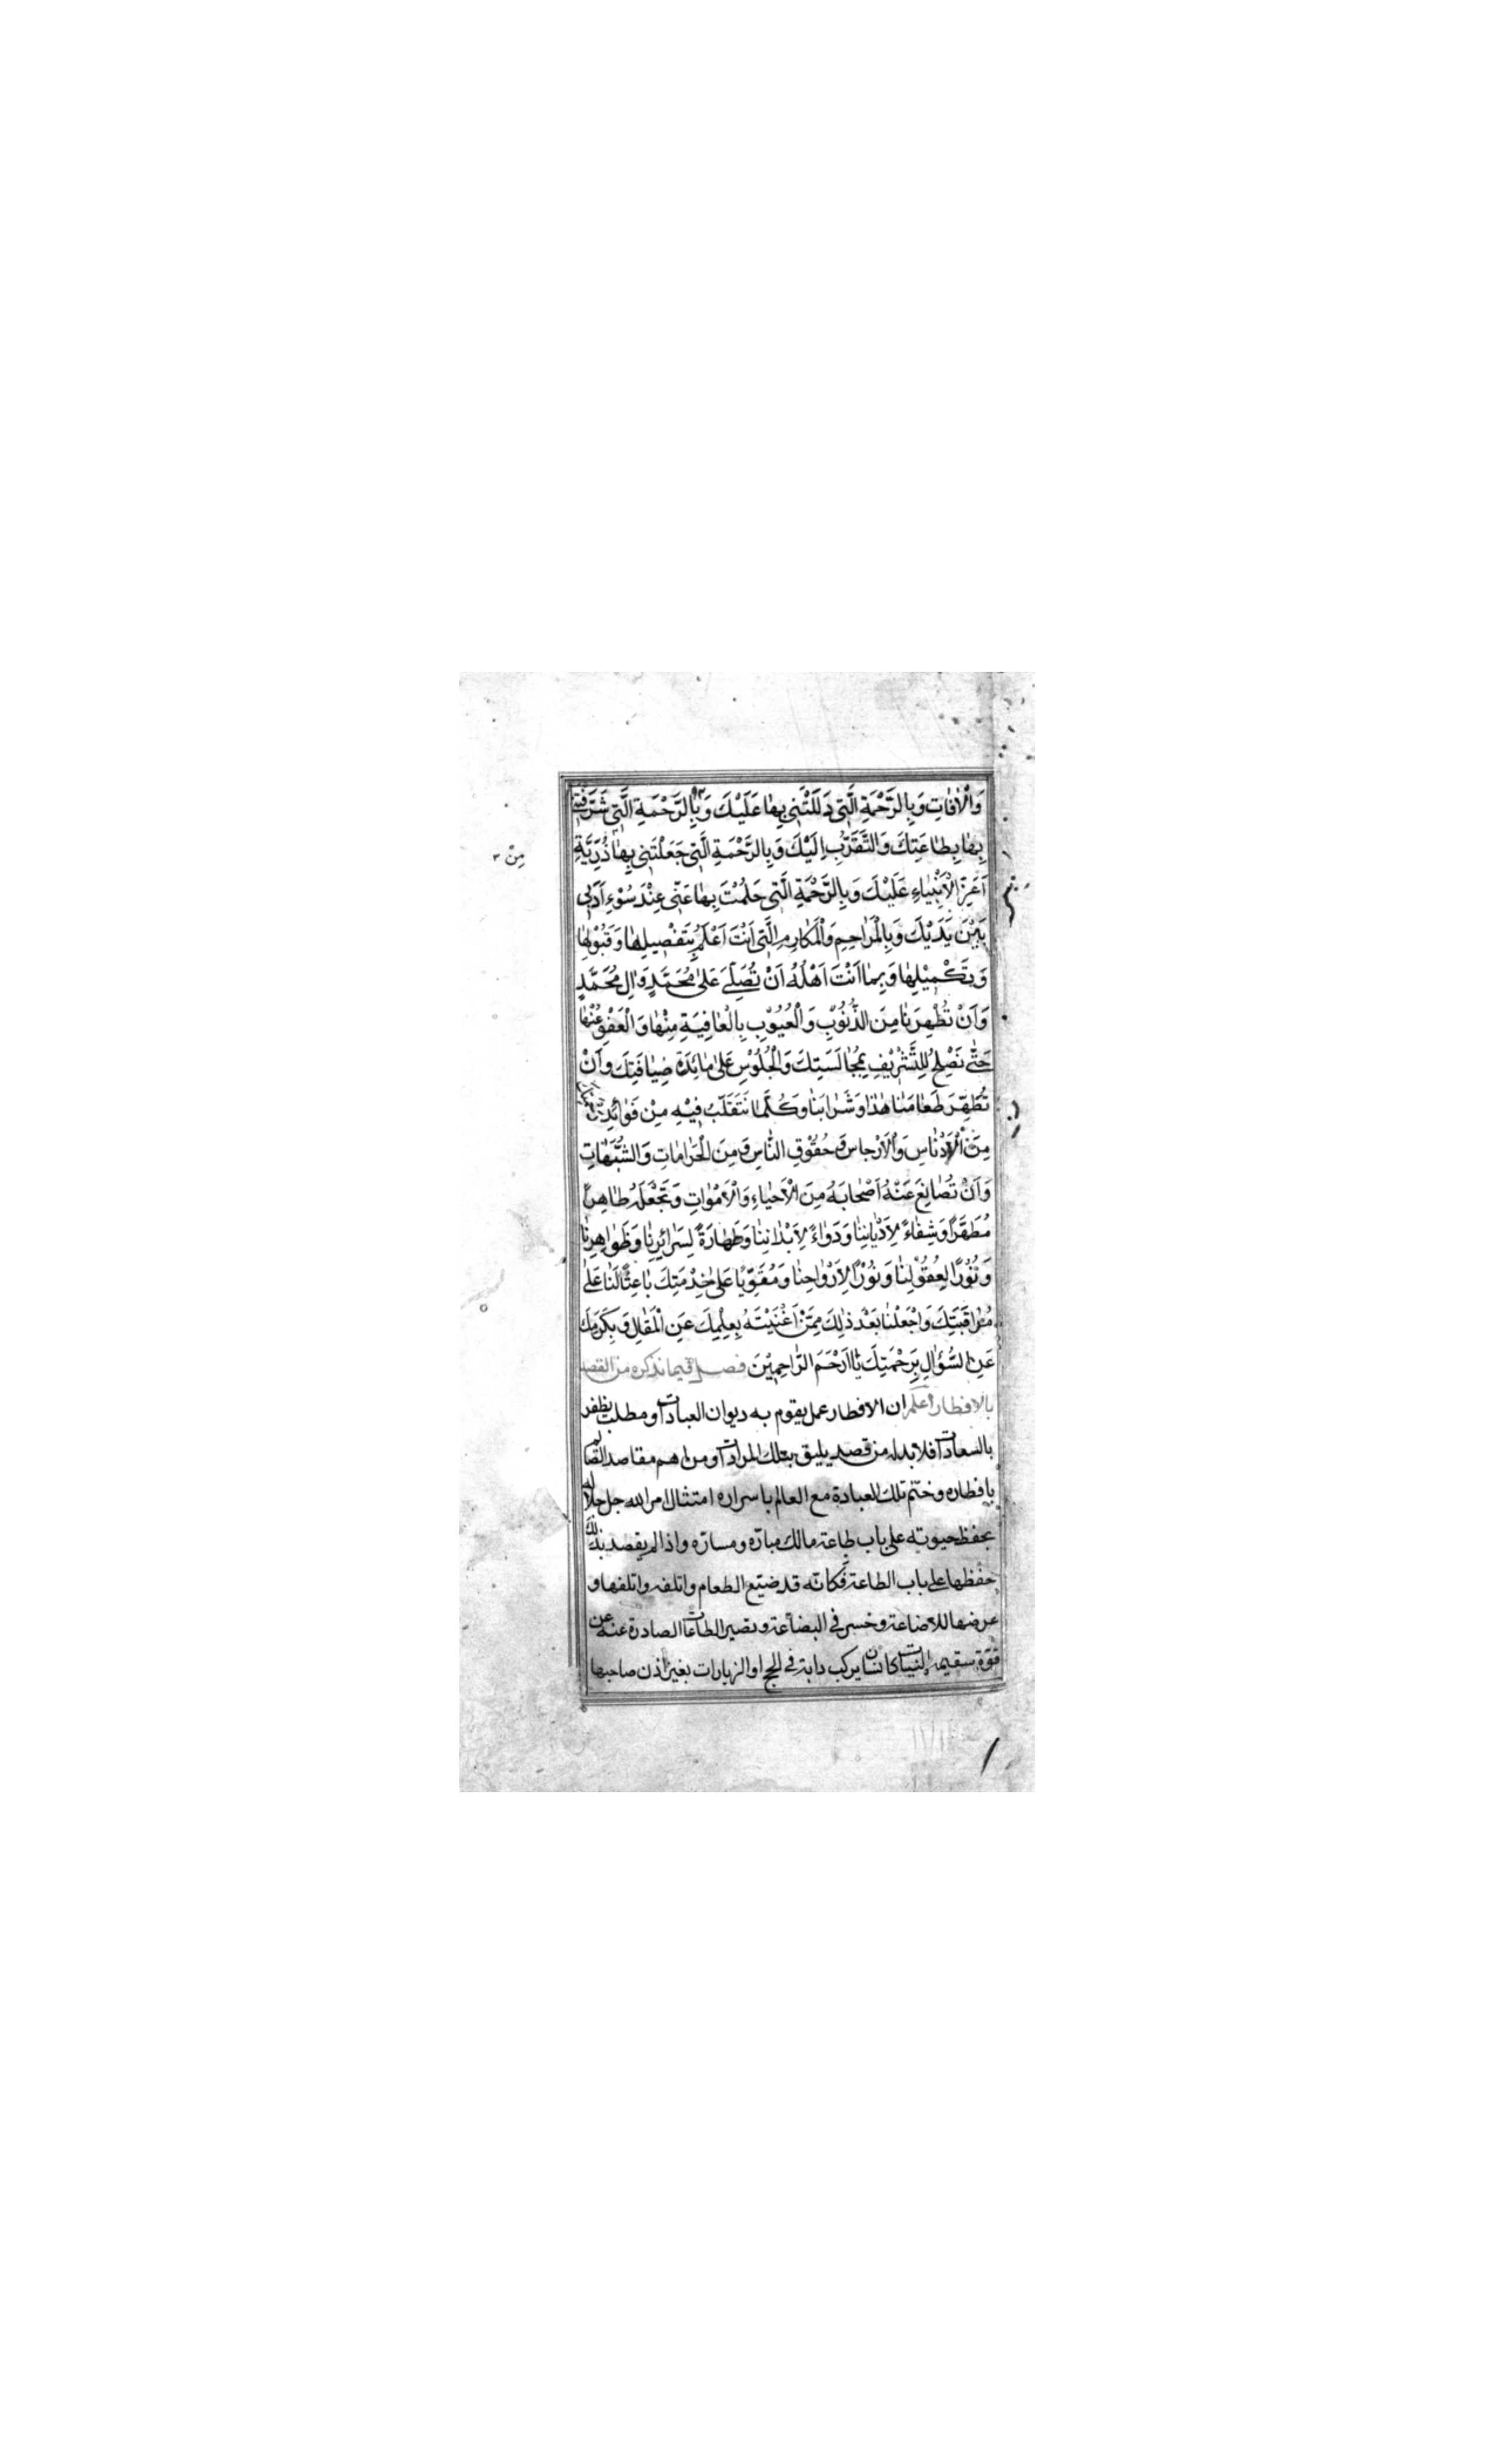 وَالْاٰفٰاتِ وَبِالرَّحْمَةِ الَّتِي دَلَلْتَنِي بِهٰا عَلَيْكَ وَبِالرَّحْمَةِ الَّتِي شَرَّفْتَنِي
بِهٰا بِطٰاعَتِكَ وَالتَّقَرُّبِ اِلَيْكَ وَبِالرَّحْمَةِ الَّتِي جَعَلْتَنِي بِهٰا ذُرِّيَّةِ
مِنْ ٣
اَعَزِّ الْاَنْبِيٰاءِ عَلَيْكَ وَبِالرَّحْمَةِ الَّتِي حَلُمْتَ بِهٰا عَنِّي عِنْدَ سُوْءِ اَدَبِي
بَيْنَ يَدَيْكَ وَبِالْمَرٰاحِمِ وَالْمَكٰارِمِ الَّتِي اَنْتَ اَعْلَمُ بِتَفْصِيلِهٰا وَقَبُوْلِهٰا
وَبِتَكْمِيْلِهٰا وَبِمٰا اَنْتَ اَهْلُهُ اَنْ تُصَلِّيَ عَلٰى مُحَمَّدٍ وَاٰلِ مُحَمَّدٍ
وَاَنْ تُطَهِّرَنٰا مِنَ الذُّنُوْبِ وَالْعُيُوْبِ بِالْعٰافِيَةِ مِنْهٰا وَالْعَفْوِ عَنْهٰا
حَتّٰى نَصْلُحَ لِلتَّشْرِيْفِ بِمُجٰالَسَتِكَ وَالْجُلُوْسِ عَلٰى مٰائِدَةِ ضِيٰافَتِكَ وَاَنْ
تُطَهِّرَ طَعٰامَنٰا هٰذٰا وَشَرٰابَنٰا وَكُلَّمٰا نَتَقَلَّبُ فِيْهِ مِنْ فَوٰائِدِ
مِنَ الْاَدْنٰاسِ وَالْاَرْجٰاسِ وَحُقُوْقِ النّٰاسِ وَمِنَ الْحَرٰامٰاتِ وَالشُّبُهٰاتِ
وَاَنْ تُصٰانِعَ عَنْهُ اَصْحٰابَهُ مِنَ الْاَحْيٰاءِ وَالْاَمْوٰاتِ وَتَجْعَلَهُ طٰاهِراً
مُطَهَّرًا وَشِفٰاءً لِاَدْيٰانِنٰا وَدَوٰاءً لِاَبْدٰانِنٰا وَطَهٰارَةً لِسَرٰائِرِنٰا وَظَوٰاهِرِنٰا
وَنُوْرًا لِعُقُوْلِنٰا وَنُوْرًا لِاَرْوٰاحِنٰا وَمُقَوِّيًا عَلٰى خِدْمَتِكَ بٰاعِثًا لَنٰا عَلٰى
مُرٰاقَبَتِكَ وَاجْعَلْنٰا بَعْدَ ذٰلِكَ مِمَّنْ اَغْنَيْتَهُ بِعِلْمِكَ عَنِ الْمَقٰالِ وَبِكَرَمِكَ
عَنِ السُّؤٰالِ بِرَحْمَتِكَ يٰا اَرْحَمَ الرّٰاحِمِيْنَ فصل فيما نذكره من القصد
بالافطار اعلم ان الافطار عمل يقوم به ديوان العبادات ومطلب يظفر
بالسعادات فلا بد له من قصد يليق بتلك المرادات ومن اهم مقاصد الصائم
بافطاره وختم تلك العبادة مع العالم باسراره امتثال امر الله جل جلاله
بحفظ حيوته على باب طاعة مالك مبارّه ومسارّه واذا لم يقصد بذلك
حفظها على باب الطاعة فكانّه قد ضيّع الطعام واتلفه واتلفها و
عرضها للاضاعة وخسر في البضاعة وتصير الطاعات الصادرة عنه عن
قوّة سقيمة النيات كانسان يركب دابة في الحج او الزيارات بغير اذن صاحبها